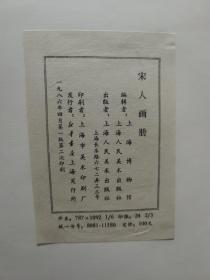 宋人画册
编辑者：上海博物馆
出版者：上海人民美术出版社
上海人民美术出版社
上海长乐路六七二弄三三号
印刷者：上海市美术印刷厂
发行者：新华书店上海发行所
一九八六年四月第一版第二次印刷
开本：787×1092 1/6 印张：24 2/3
统一书号：8081·11350 定价：300元